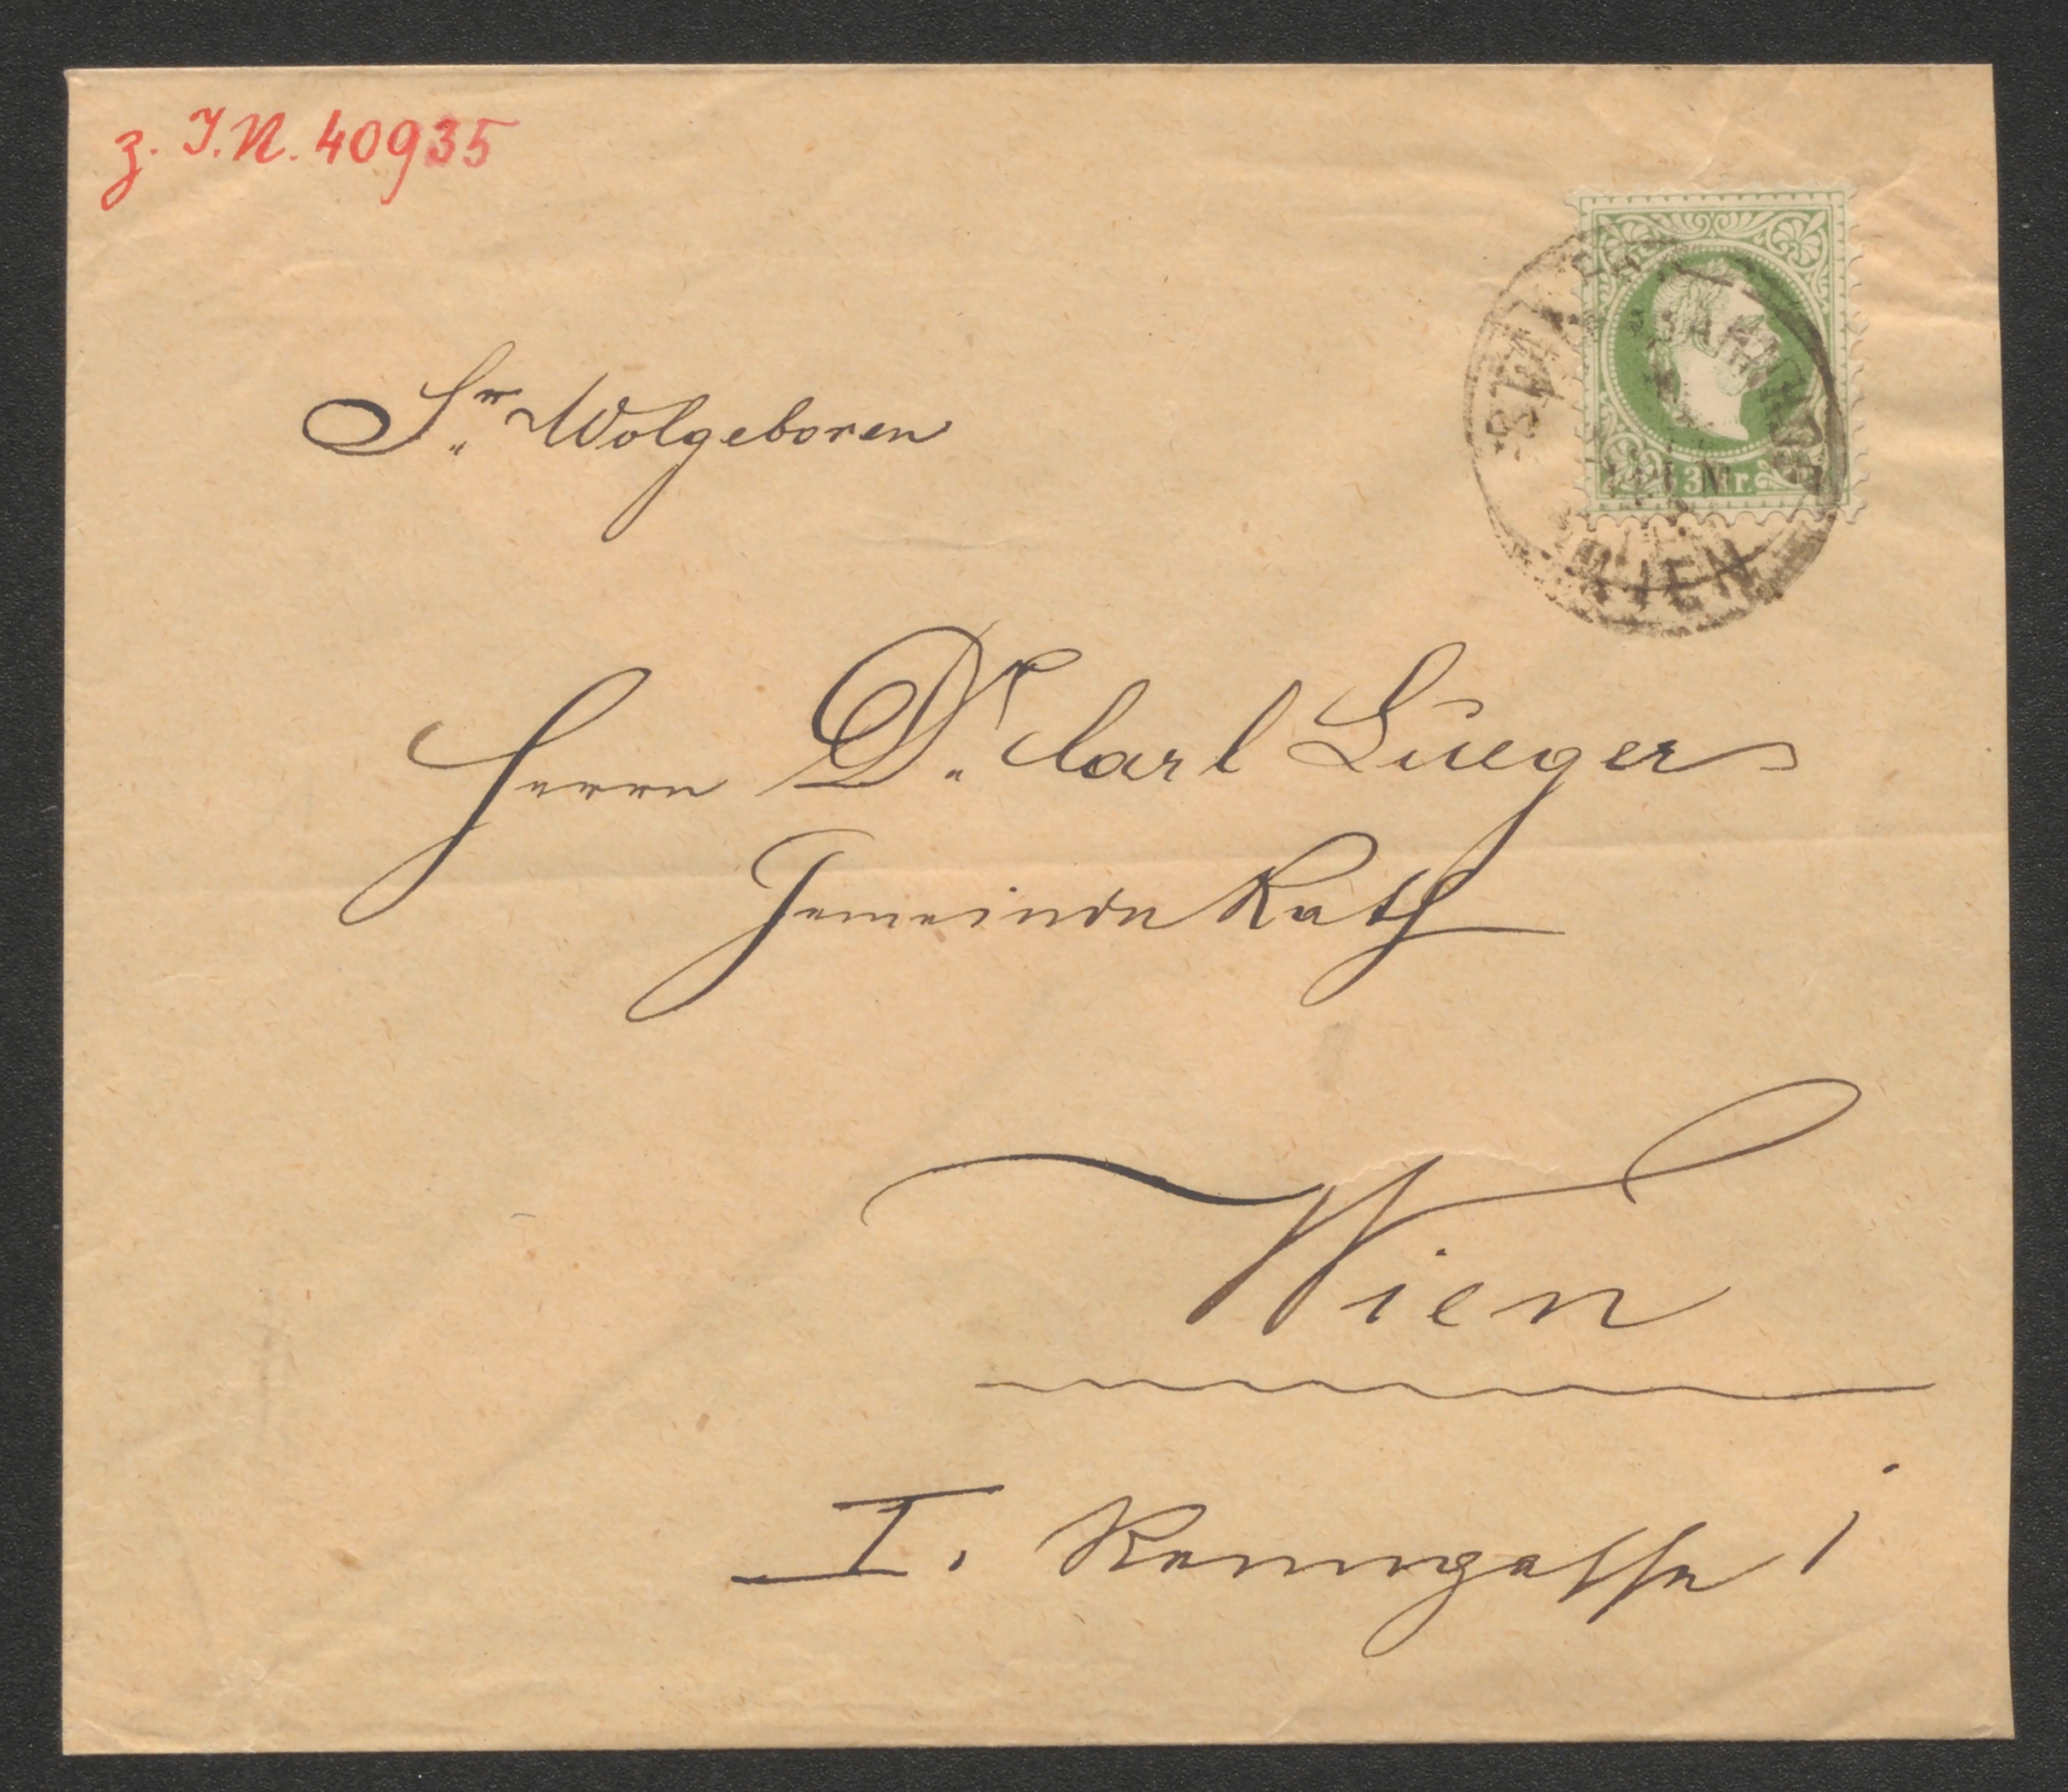 z. I.N. 40935
Sr. Wolgeboren
3 kr.
BAHNHOF
WIEN
Herrn Dr. Carl Lueger
Gemeinde Rath
Wien
I. Renngasse 1